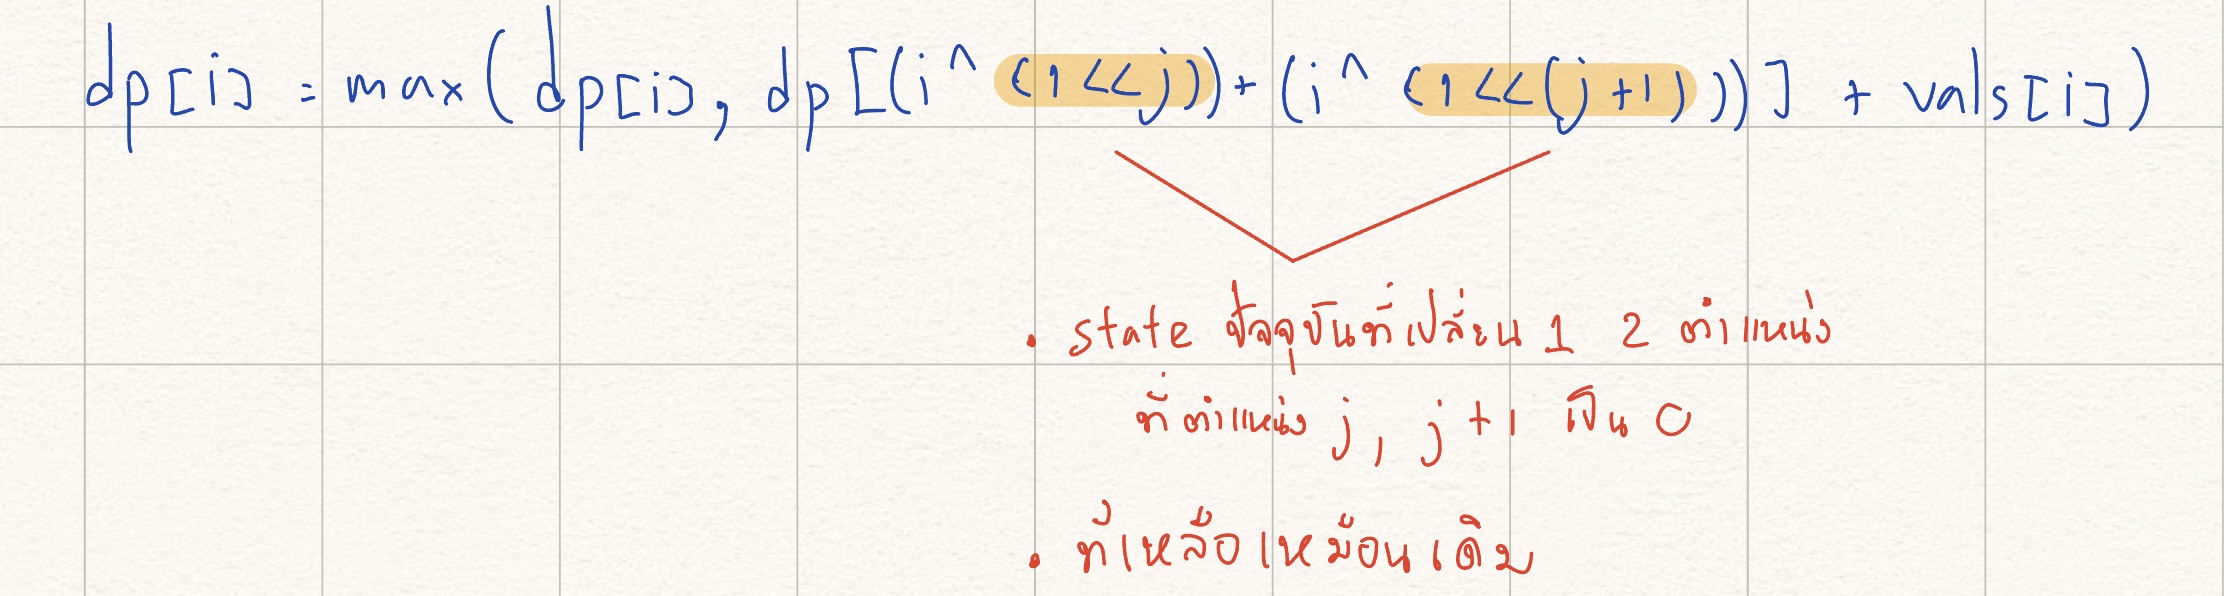 dp[i] = max(dp[i], dp[(i^(1<<j))+(i^(1<<(j+1)))] + vals[i])
• state ปัจจุบันที่เปลี่ยน 1 2 ตำแหน่ง
ที่ตำแหน่ง j, j+1 เป็น 0
• ที่เหลือเหมือนเดิม